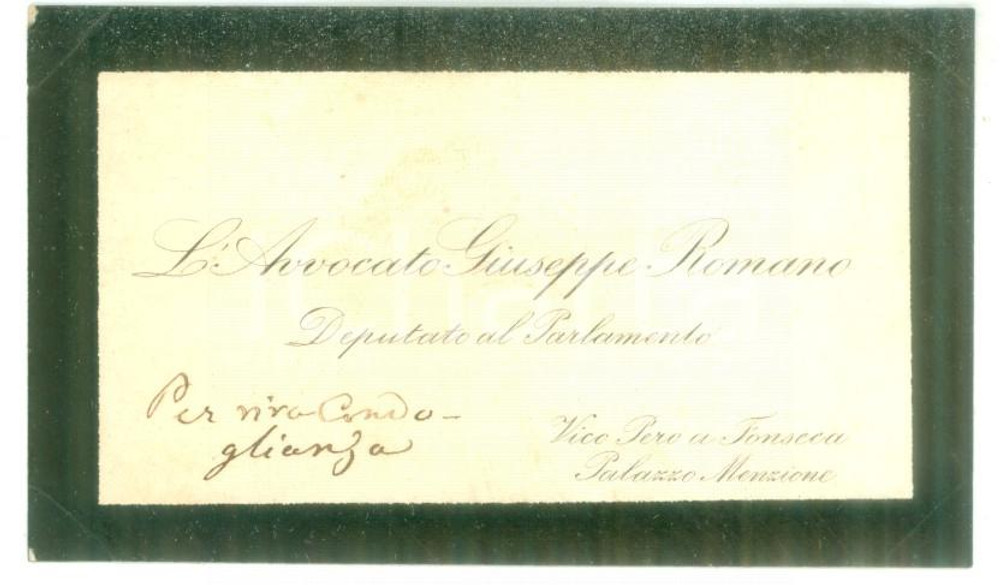 L'Avvocato Giuseppe Romano
Deputato al Parlamento
Per viva Condo-
glianza
Vico Pero a Fonseca
Palazzo Menzione